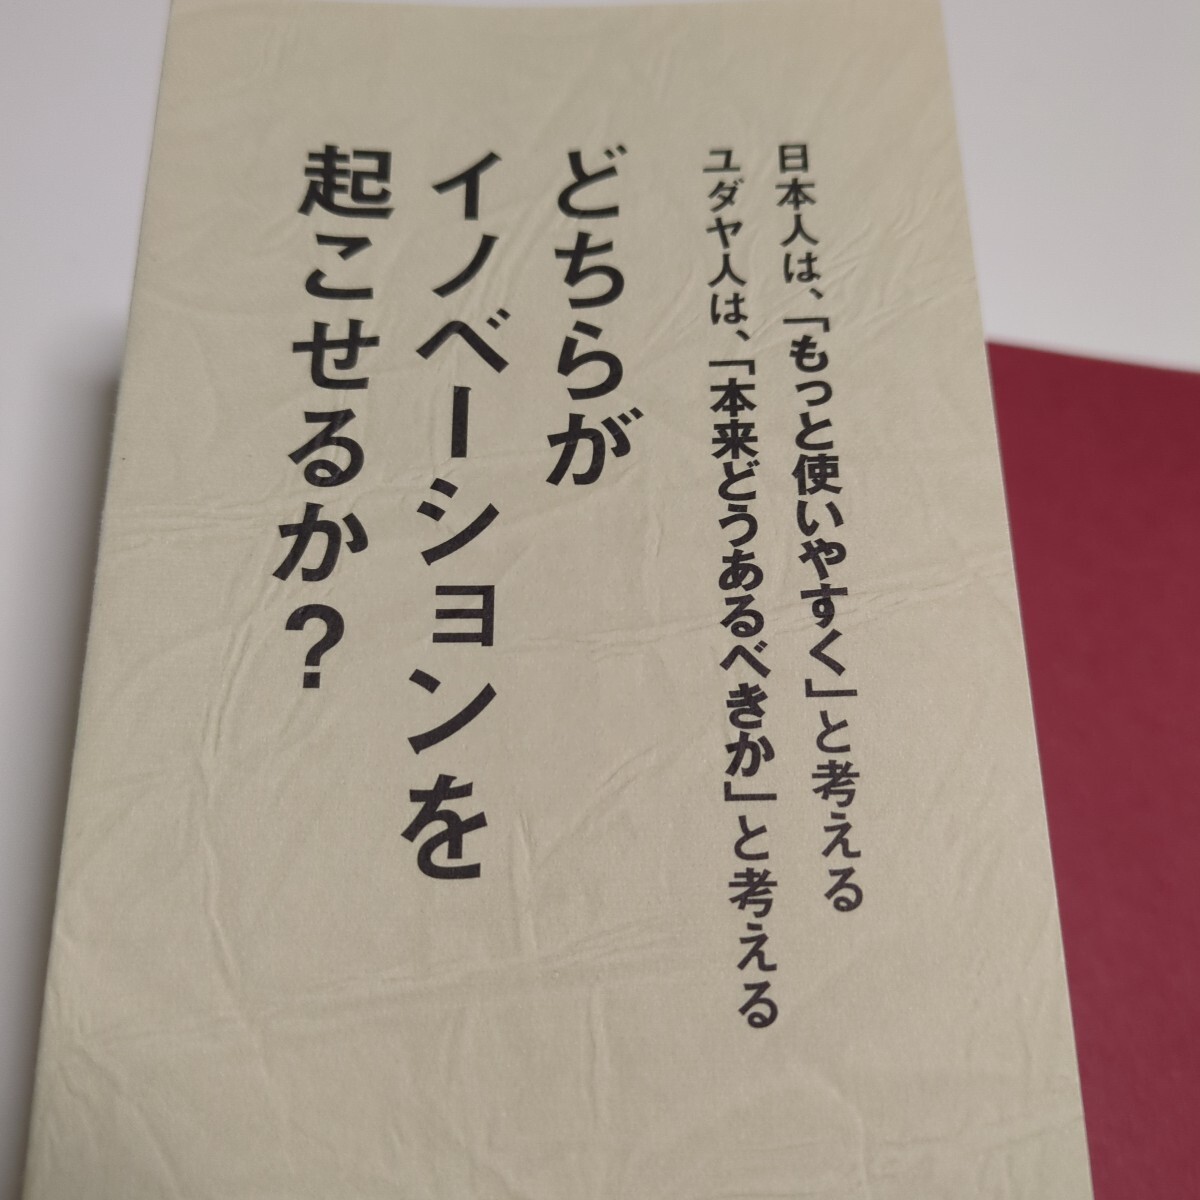 日本人は、「もっと使いやすく」と考える
ユダヤ人は、「本来どうあるべきか」と考える
どちらが
イノベーションを
起こせるか?